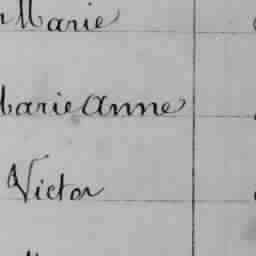 Marie
Marie Anne
Victor